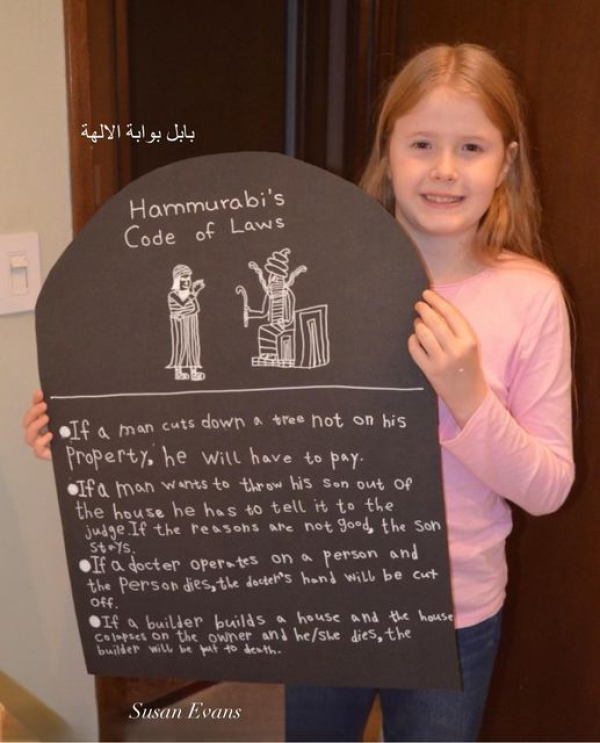 بابل بوابة الالهة
Hammurabi's
Code of Laws
If a man cuts down a tree not on his
Property, he will have to pay.
If a man wants to throw his son out of
the house he has to tell it to the
judge. If the reasons are not good, the son
stays.
If a docter operates on a person and
the Person dies, the docter's hand will be cut
off.
If a builder builds a house and the house
colapses on the owner and he/she dies, the
builder will be put to death.
Susan Evans